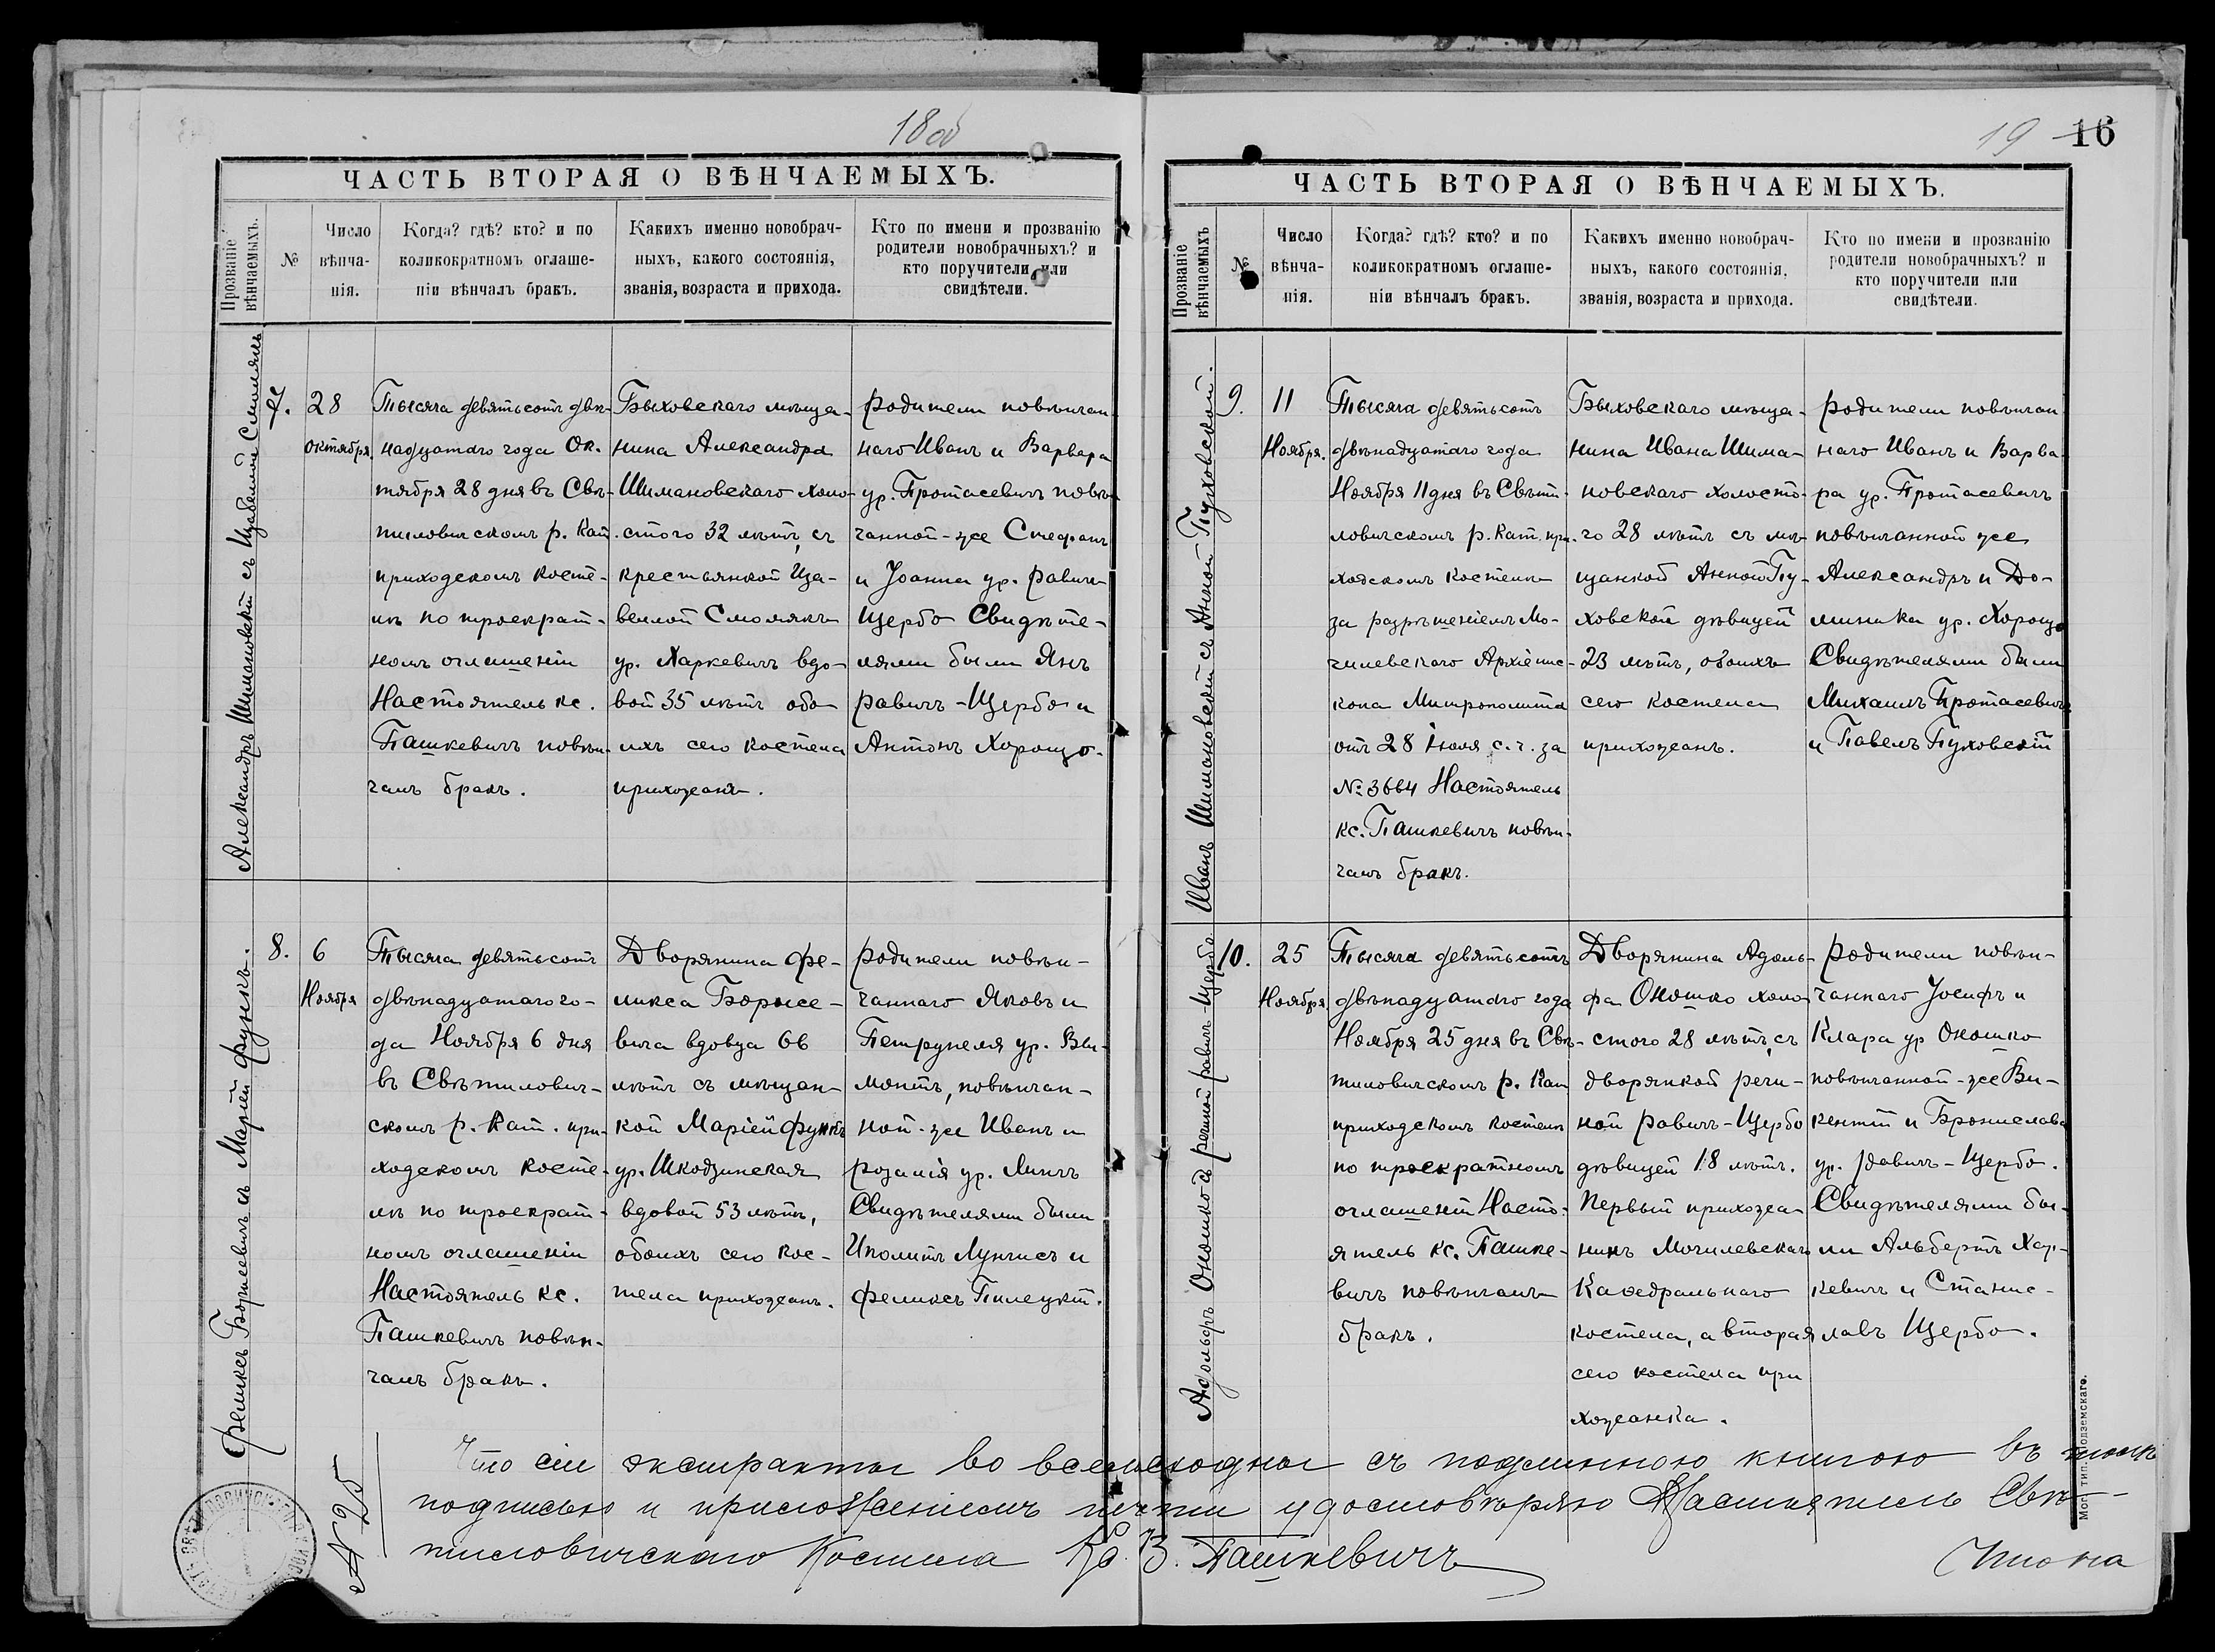 18 об
ЧАСТЬ ВТОРАЯ О ВѢНЧАЕМЫХЪ.
Прозваніе вѣнчаемыхъ.
№
Число вѣнча-
нія.
Когда? гдѣ? кто? и по
коликократномъ оглаше-
ніи вѣнчалъ бракъ.
Какихъ именно новобрач-
ныхъ, какого состоянія,
званія, возраста и прихода.
Кто по имени и прозванію
родители новобрачныхъ? и
кто поручители или
свидѣтели.
Александръ Шимановскій съ Изабеллой Смолякъ
7.
28
Октября.
Тысяча девятьсотъ двѣ-
надцатаго года Ок-
тября 28 дня въ Свѣ-
тиловичскомъ р. кат.
приходскомъ косте-
лѣ по троекрат-
номъ оглашеніи
Настоятель кс.
Пашкевичъ повѣн-
чалъ бракъ.
Быховскаго мѣща-
нина Александра
Шимановскаго холо-
стого 32 лѣтъ, съ
крестьянкой Иза-
беллой Смолякъ
ур. Харкевичъ вдо-
вой 35 лѣтъ обо-
ихъ сего костела
прихожанъ.
родители повѣнчан
наго Иванъ и Варвара
ур. Протасевичъ повѣн
чанной-же Стефанъ
и Іоанна ур. Равичъ
Щербо Свидѣте-
лями были Янъ
Равичъ-Щербо и
Антонъ Хорощо.
Феликсъ Борисевичъ съ Маріей Функъ.
8.
6
Ноября
Тысяча девятьсотъ
двѣнадцатаго го-
да Ноября 6 дня
въ Свѣтилович-
скомъ р. кат. при-
ходскомъ косте-
лѣ по троекрат-
номъ оглашеніи
Настоятель кс.
Пашкевичъ повѣн-
чалъ бракъ.
Дворянина Фе-
ликса Борисе-
вича вдовца 66
лѣтъ съ мѣщан-
кой Маріей Функъ
ур. Шкодзинская
вдовой 53 лѣтъ,
обоихъ сего кос-
тела прихожанъ.
родители повѣн-
чаннаго Яковъ и
Петрунеля ур.
монтъ, повѣнчан-
ной-же Иванъ и
Розалія ур.
Свидѣтелями были
Иполитъ и
Феликсъ Пилецкій.
19 16
ЧАСТЬ ВТОРАЯ О ВѢНЧАЕМЫХЪ.
Прозваніе вѣнчаемыхъ
№
Число вѣнча-
нія.
Когда? гдѣ? кто? и по
коликократномъ оглаше-
ніи вѣнчалъ бракъ.
Какихъ именно новобрач-
ныхъ, какого состоянія,
званія, возраста и прихода.
Кто по имени и прозванію
родители новобрачныхъ? и
кто поручители или
свидѣтели.
Иванъ Шимановскій съ Анной Пуховской.
9.
11
Ноября.
Тысяча девятьсотъ
двѣнадцатаго года
Ноября 11 дня въ Свѣти-
ловичскомъ р. кат. при-
ходскомъ костелѣ
за разрѣшеніемъ Мо-
гилевскаго Архіепис-
копа Митрополита
отъ 28 Іюля с. г. за
№ 3664 Настоятель
кс. Пашкевичъ повѣн-
чалъ бракъ.
Быховскаго мѣща-
нина Ивана Шима-
новскаго холосто-
го 28 лѣтъ съ мѣ-
щанкой Анной Пу-
ховской дѣвицей
23 лѣтъ, обоихъ
сего костела
прихожанъ.
родители повѣнчан
наго Иванъ и Варва-
ра ур. Протасевичъ
повѣнчанной же
Александръ и До-
миника ур. Хорощо
Свидѣтелями были
Михаилъ Протасевичъ
и Павелъ Пуховскій
Адольфъ Оношко съ Региной Равичъ-Щербо.
10.
25
Ноября
Тысяча девятьсотъ
двѣнадцатаго года
Ноября 25 дня въ Свѣ-
тиловичскомъ р. кат
приходскомъ костелѣ
по троекратномъ
оглашеніи Насто-
ятель кс. Пашке-
вичъ повѣнчалъ
бракъ.
Дворянина Адоль-
фа Оношко холо-
стого 28 лѣтъ, съ
дворянкой реги-
ной Равичъ-Щербо
дѣвицей 18 лѣтъ.
Первый прихожа-
нинъ Могилевскаго
Каѳедральнаго
костела, а вторая
сего костела при
хожанка.
родители повѣн-
чаннаго Іосифъ и
Клара ур Оношко
повѣнчанной-же Ви-
кентій и Бронислава
ур. Равичъ-Щербо.
Свидѣтелями бы-
ли Альбертъ Хар-
кевичъ и Станис-
лавъ Щербо.
Могил. тип. Подземскаго.
№ 25
Что сіи экстракты во всемъ сходны съ подлинною книгою въ томъ
подписью и приложеніемъ печати удостовѣряю Настоятель Свѣ-
тиловичскаго Костела Кс. В. Пашкевичъ